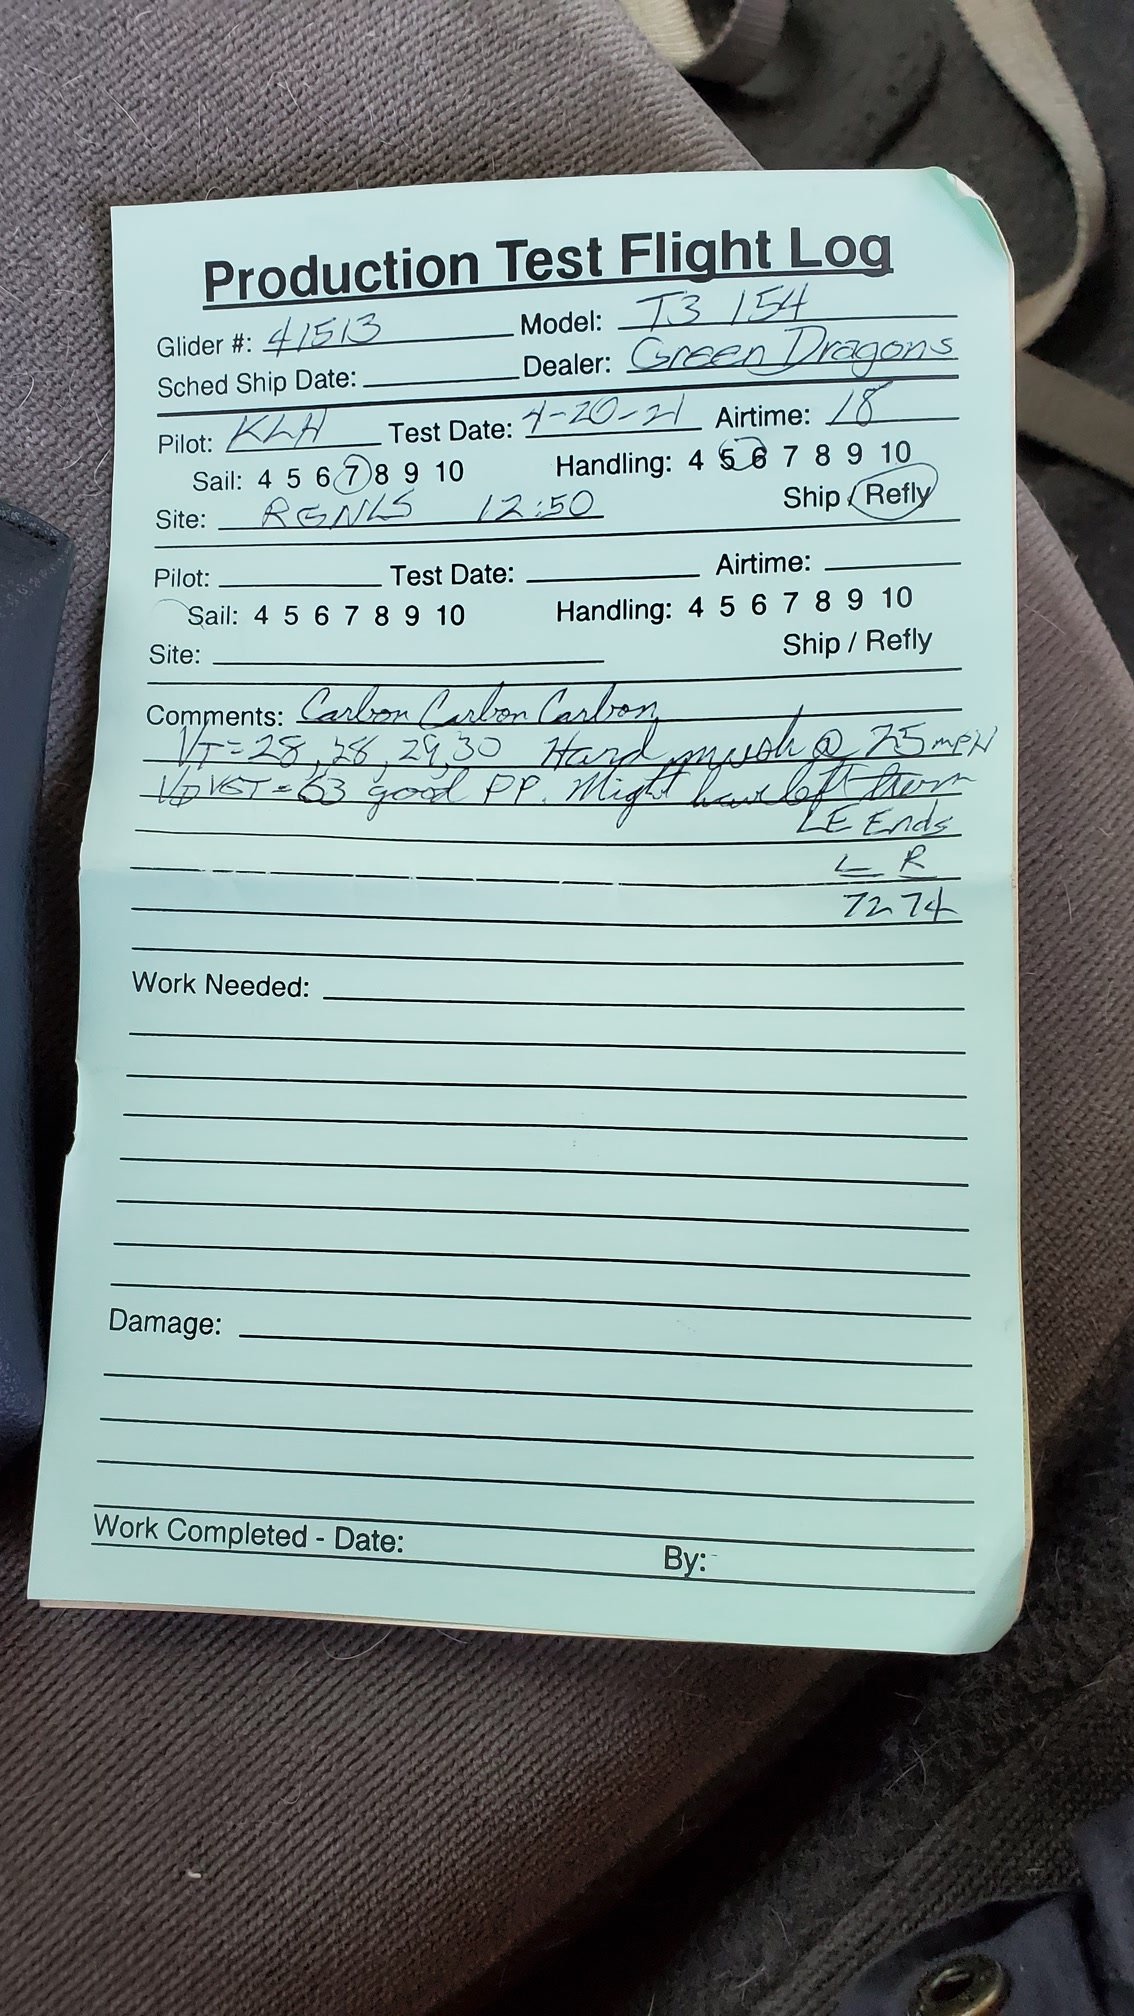 Production Test Flight Log
Glider #: 41513 Model: T3 154
Sched Ship Date: Dealer: Green Dragons
Pilot: KLH Test Date: 4-20-21 Airtime: 18
Sail: 4 5 6 7 8 9 10 Handling: 4 5 6 7 8 9 10
Site: RGNLS 12:50 Ship / Refly
Pilot: Test Date: Airtime:
Sail: 4 5 6 7 8 9 10 Handling: 4 5 6 7 8 9 10
Site: Ship / Refly
Comments: Carbon Carbon Carbon
VT = 28, 28, 29, 30 Hard mush @ 25 mph
VG = 63 good PP. Might have left turn
LE Ends
L R
72 74
Work Needed:
Damage:
Work Completed - Date: By: